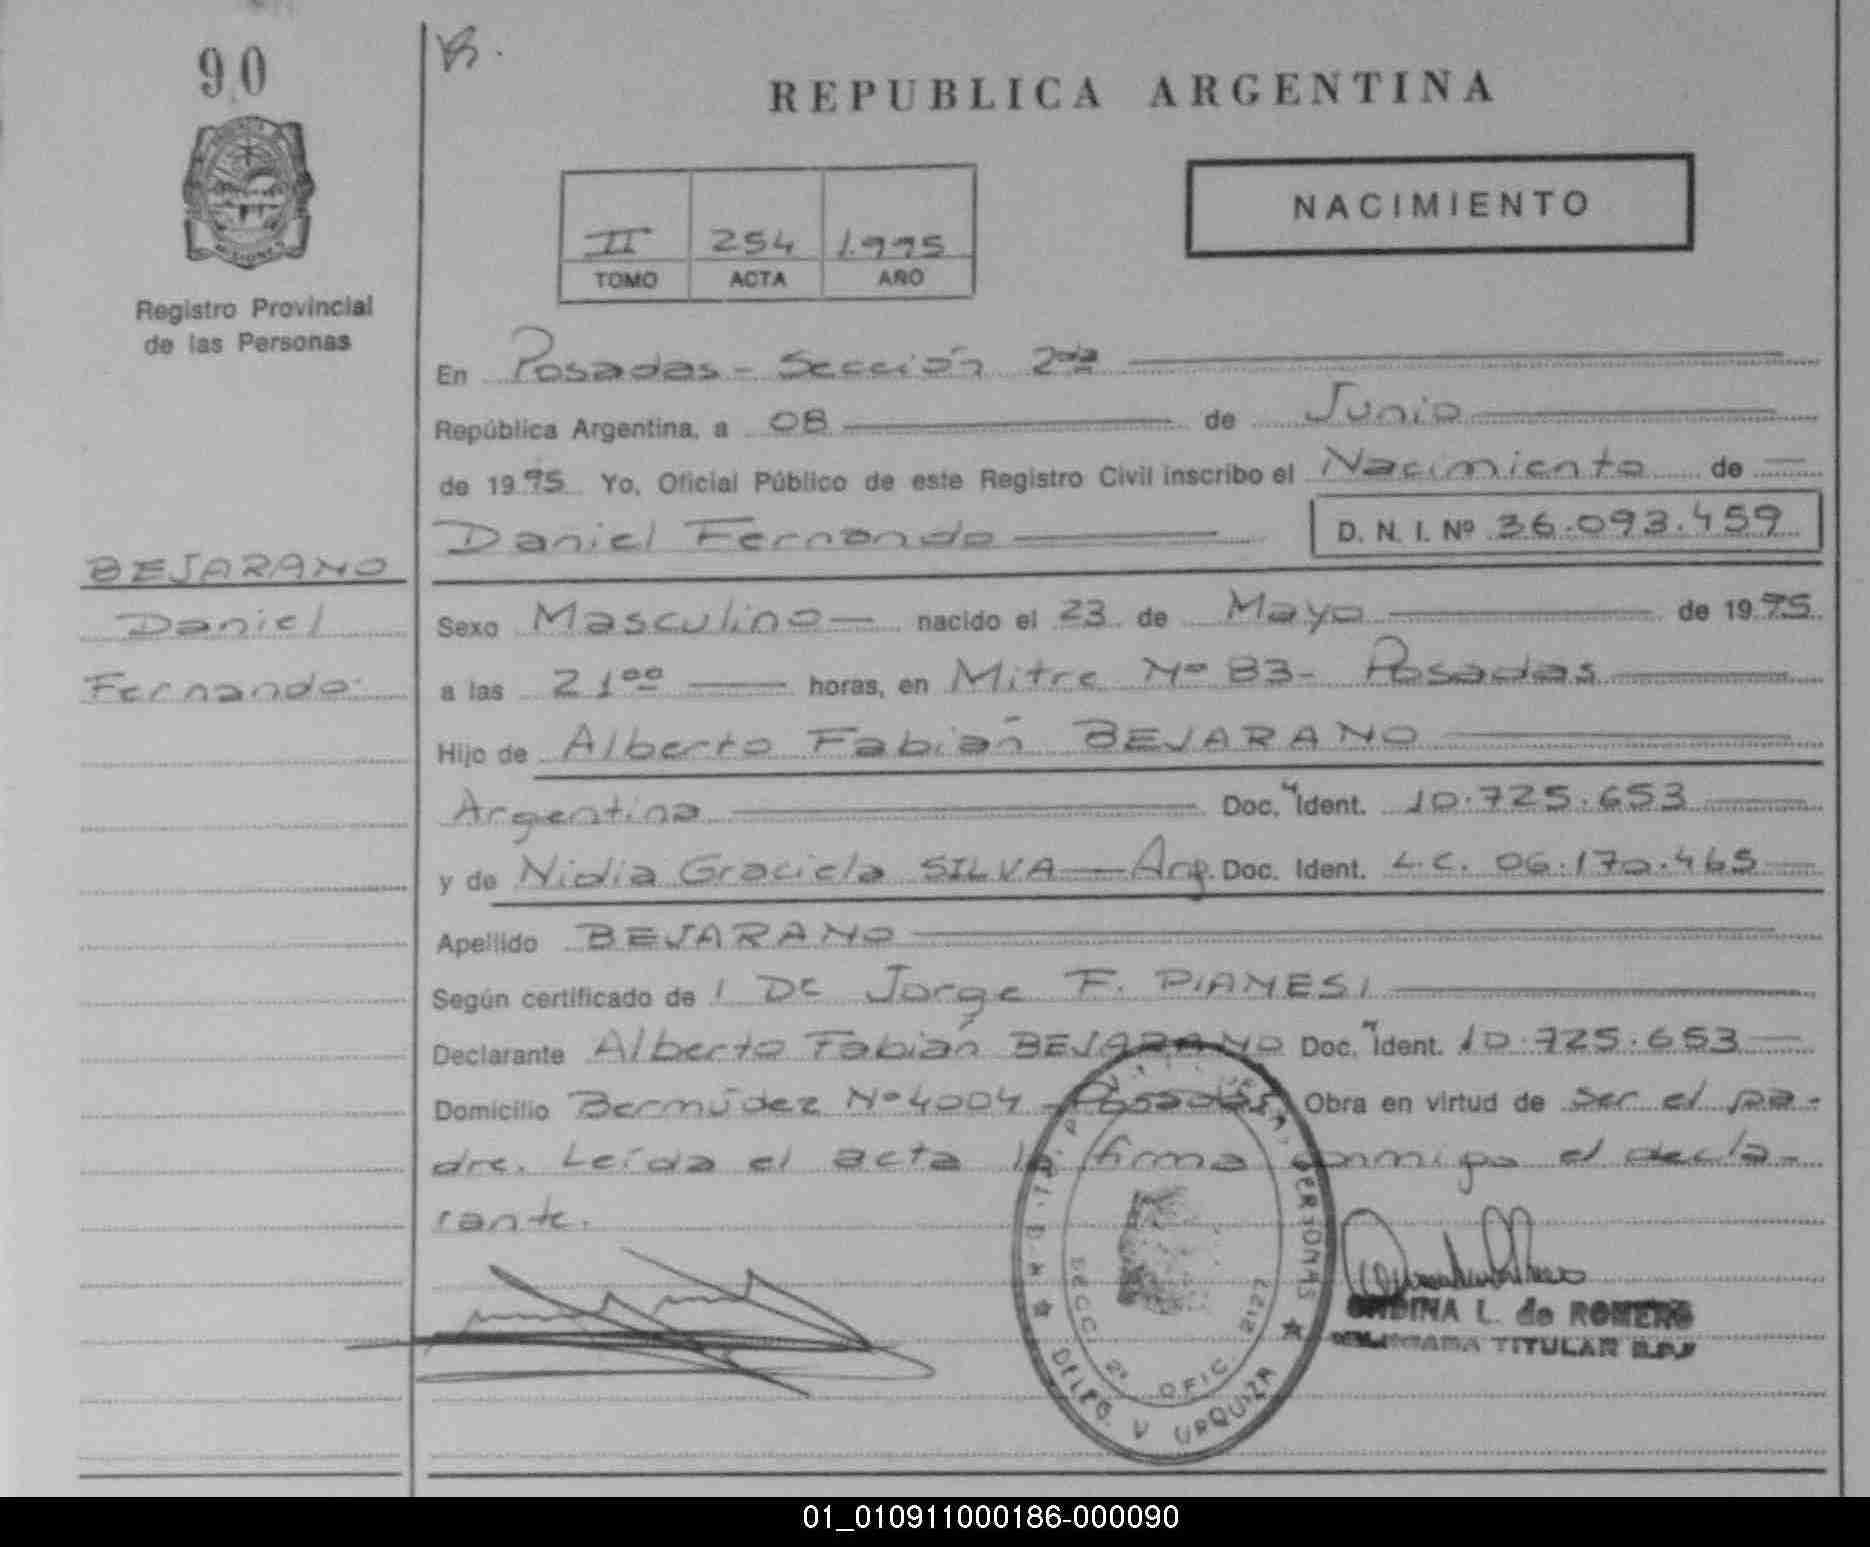 90
REPUBLICA ARGENTINA
NACIMIENTO
II 254 1.995
TOMO ACTA AÑO
Registro Provincial
de las Personas
En Posadas - Sección 2da
República Argentina, a 08 de Junio
de 1995 Yo, Oficial Público de este Registro Civil inscribo el Nacimiento de
Daniel Fernando D. N. I. Nº 36.093.459
BEJARANO
Daniel
Fernando.
Sexo Masculino nacido el 23 de Mayo de 1995
a las 21 00 horas, en Mitre Nº 83 - Posadas
Hijo de Alberto Fabián BEJARANO
Argentina Doc. Ident. 10.725.653
y de Nidia Graciela SILVA — Arg. Doc. Ident. L.C. 06.170.465
Apellido BEJARANO
Según certificado de Dr Jorge F. PIANESI
Declarante Alberto Fabián BEJARANO Doc. Ident. 10.725.653
Domicilio Bermúdez Nº 4004 - Posadas, Obra en virtud de ser el pa-
dre. Leída el acta la firma conmigo el decla-
rante.
SECC. 2ª OFIC. 2127
DELEG. V URQUIZA
L. de ROMERO
TITULAR
01_010911000186-000090